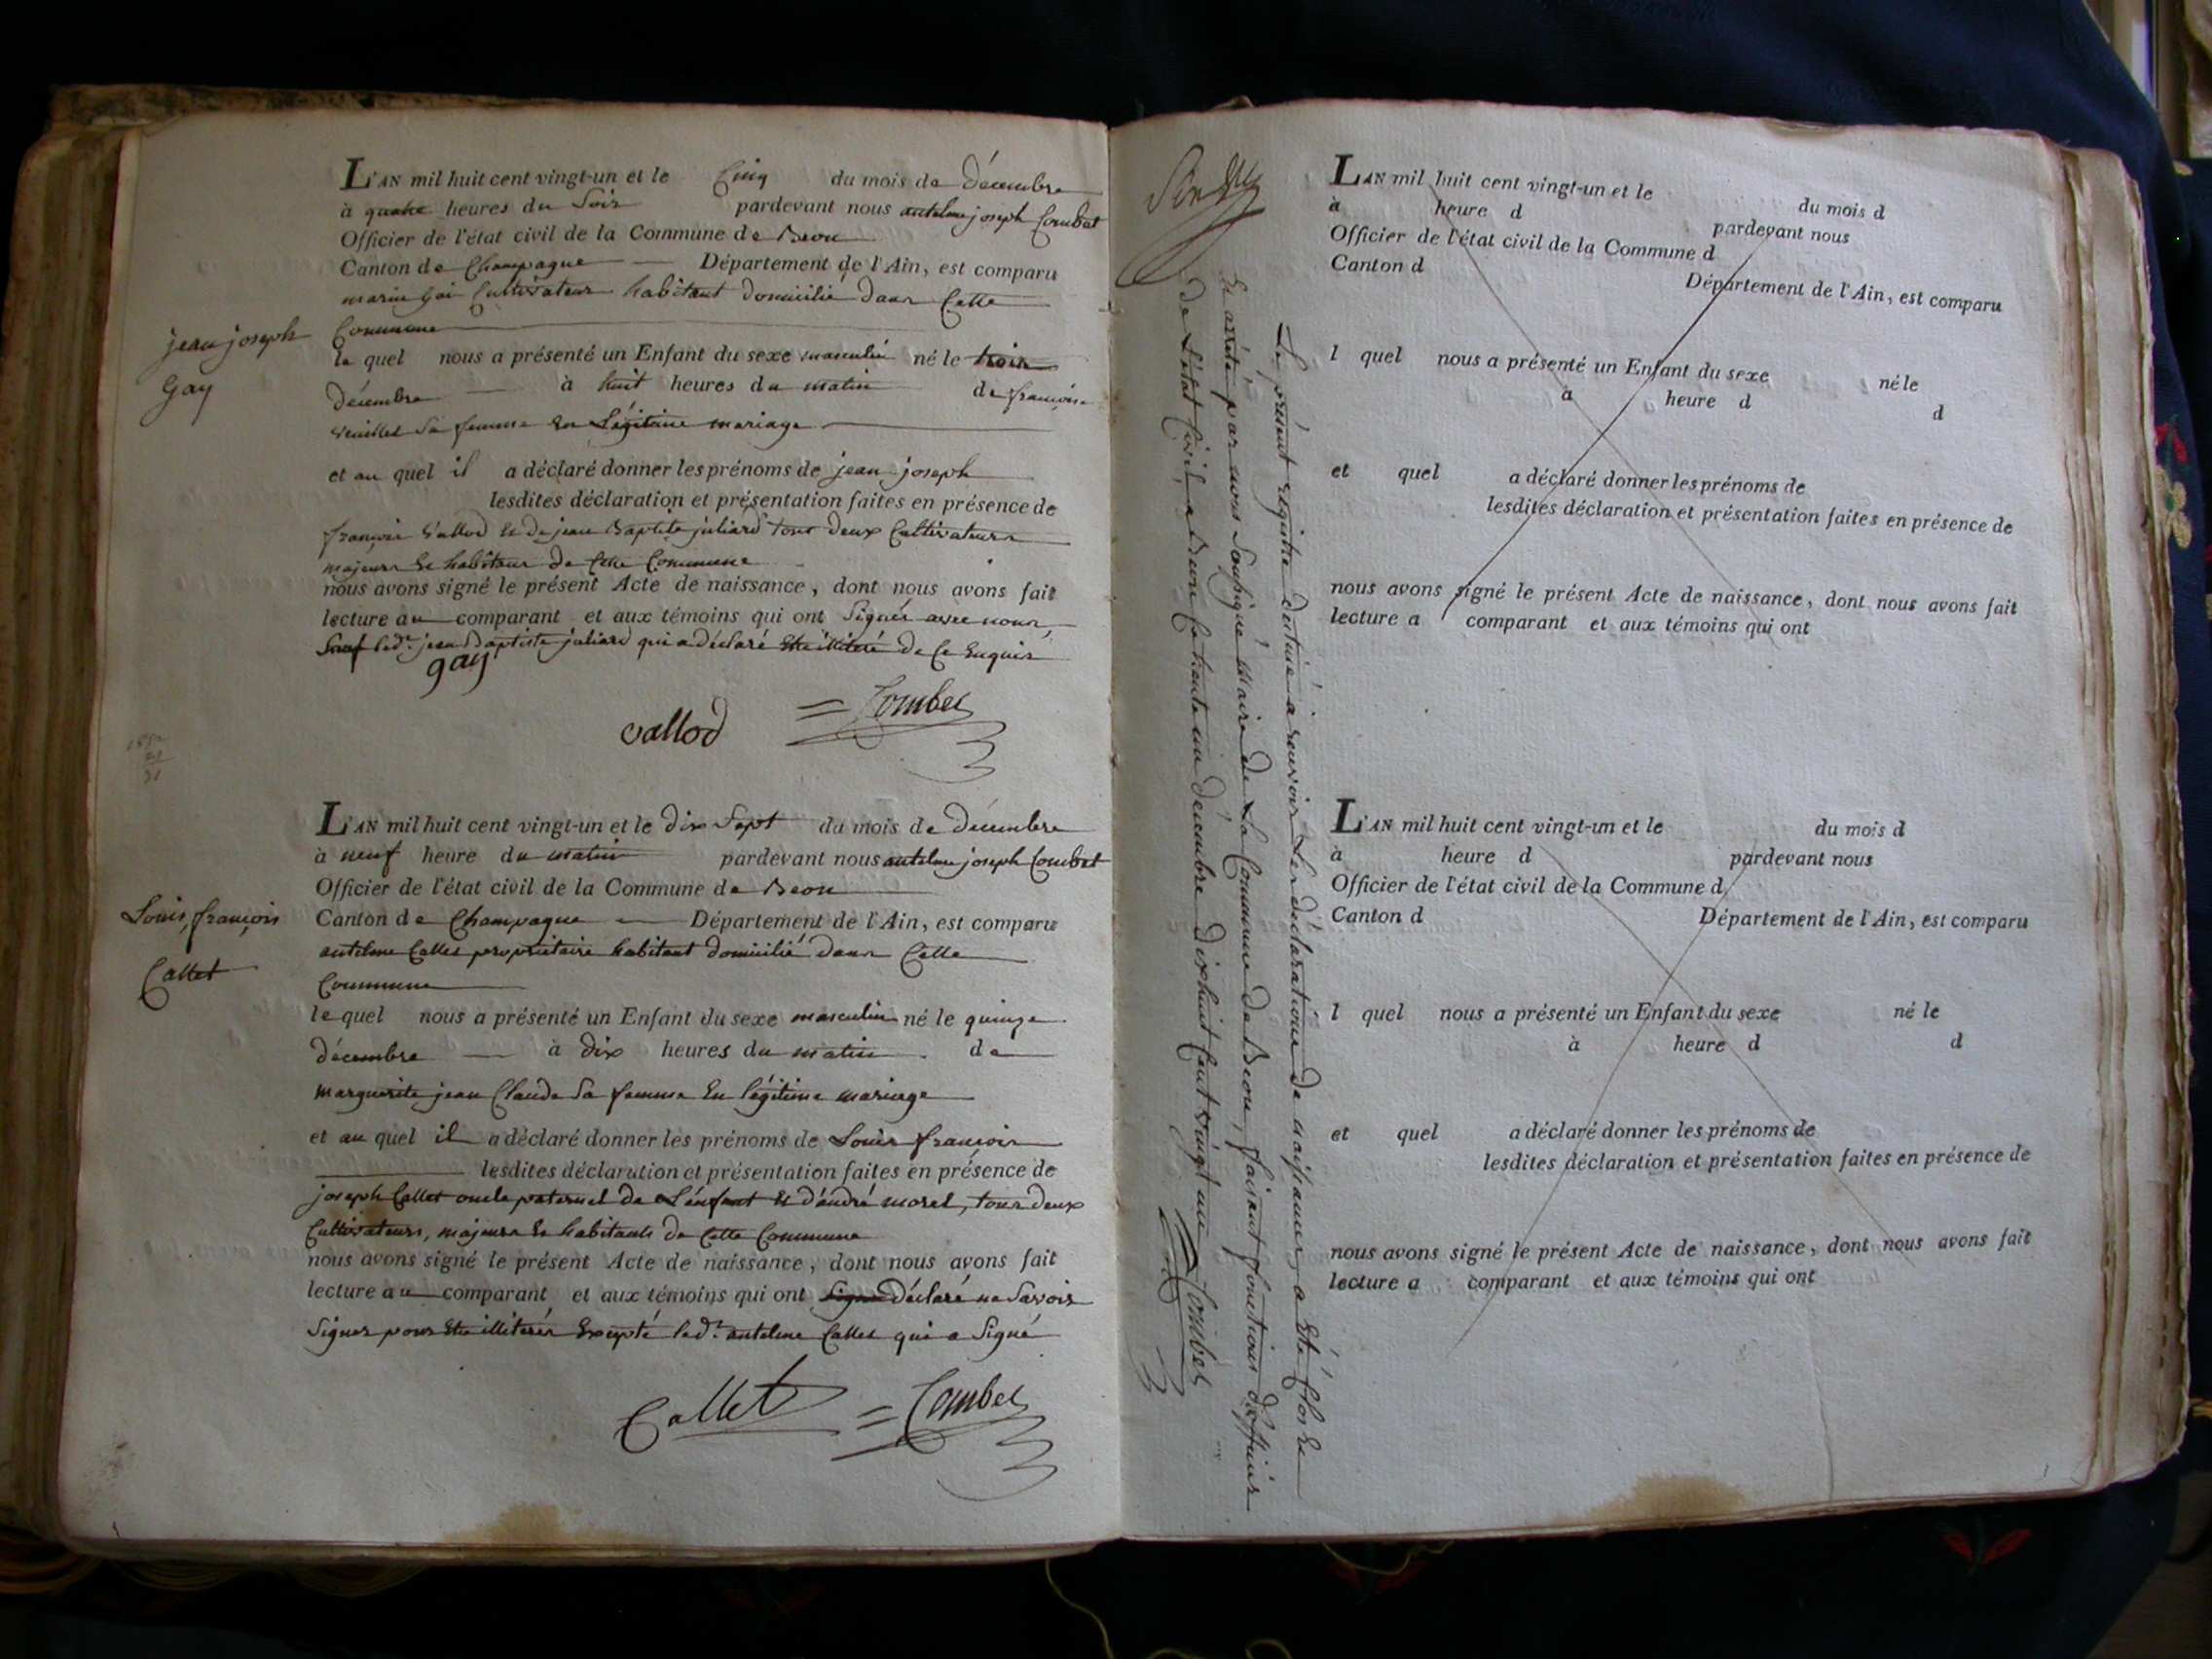 L'AN mil huit cent vingt-un et le Cinq du mois de décembre
à quatre heures du Soir pardevant nous antelme joseph Combet
Officier de l'état civil de la Commune de Beon
Canton de Champagne Département de l'Ain, est comparu
marin Gai Cultivateur habitant domicilié dans Cette
Commune
jean joseph
Gay
le quel nous a présenté un Enfant du sexe masculin né le trois
décembre à huit heures du matin de françoise
sa femme en Légitime mariage
et au quel il a déclaré donner les prénoms de jean joseph
lesdites déclaration et présentation faites en présence de
françois Vallod et de jean Baptiste juliard tous deux Cultivateurs
majeurs et habitans de Cette Commune
nous avons signé le présent Acte de naissance, dont nous avons fait
lecture au comparant et aux témoins qui ont Signés avec nous,
Sauf led.t jean Baptiste juliard qui a déclaré Etre illiteré de Ce Enquis
gay
vallod = Combet
L'AN mil huit cent vingt-un et le dix Sept du mois de décembre
à neuf heure du matin pardevant nous antelme joseph Combet
Officier de l'état civil de la Commune de Beon
Louis, françois
Callet
Canton de Champagne Département de l'Ain, est comparu
antelme Callet propriétaire habitant domicilié dans Cette
Commune
le quel nous a présenté un Enfant du sexe masculin né le quinze
décembre à dix heures du matin de
marguerite jean Claude Sa femme En légitime mariage
et au quel il a déclaré donner les prénoms de Louis françois
lesdites déclaration et présentation faites en présence de
joseph Callet oncle paternel de L'énfant Et d'andré morel, tous deux
Cultivateurs, majeurs Et habitants de Cette Commune
nous avons signé le présent Acte de naissance, dont nous avons fait
lecture au comparant et aux témoins qui ont Signé déclaré ne Savoir
Signer pour Etre illiterés Excepté led.t antelme Callet qui a Signé
Callet = Combet
Le présent régistre destiné à recevoir Les déclarations de naissances, a Eté Clos Et
Et arrêté par nous Soussigné Maire de La Commune de Beon, faisant fonctions d'officier
de L'état Civil, a Beon Ce trente un décembre dix huit Cent vingt un
= Combet
L'AN mil huit cent vingt-un et le du mois d
à heure d pardevant nous
Officier de l'état civil de la Commune d
Canton d Département de l'Ain, est comparu
l quel nous a présenté un Enfant du sexe né le
à heure d d
et quel a déclaré donner les prénoms de
lesdites déclaration et présentation faites en présence de
nous avons signé le présent Acte de naissance, dont nous avons fait
lecture a comparant et aux témoins qui ont
L'AN mil huit cent vingt-un et le du mois d
à heure d pardevant nous
Officier de l'état civil de la Commune d
Canton d Département de l'Ain, est comparu
l quel nous a présenté un Enfant du sexe né le
à heure d d
et quel a déclaré donner les prénoms de
lesdites déclaration et présentation faites en présence de
nous avons signé le présent Acte de naissance, dont nous avons fait
lecture a comparant et aux témoins qui ont